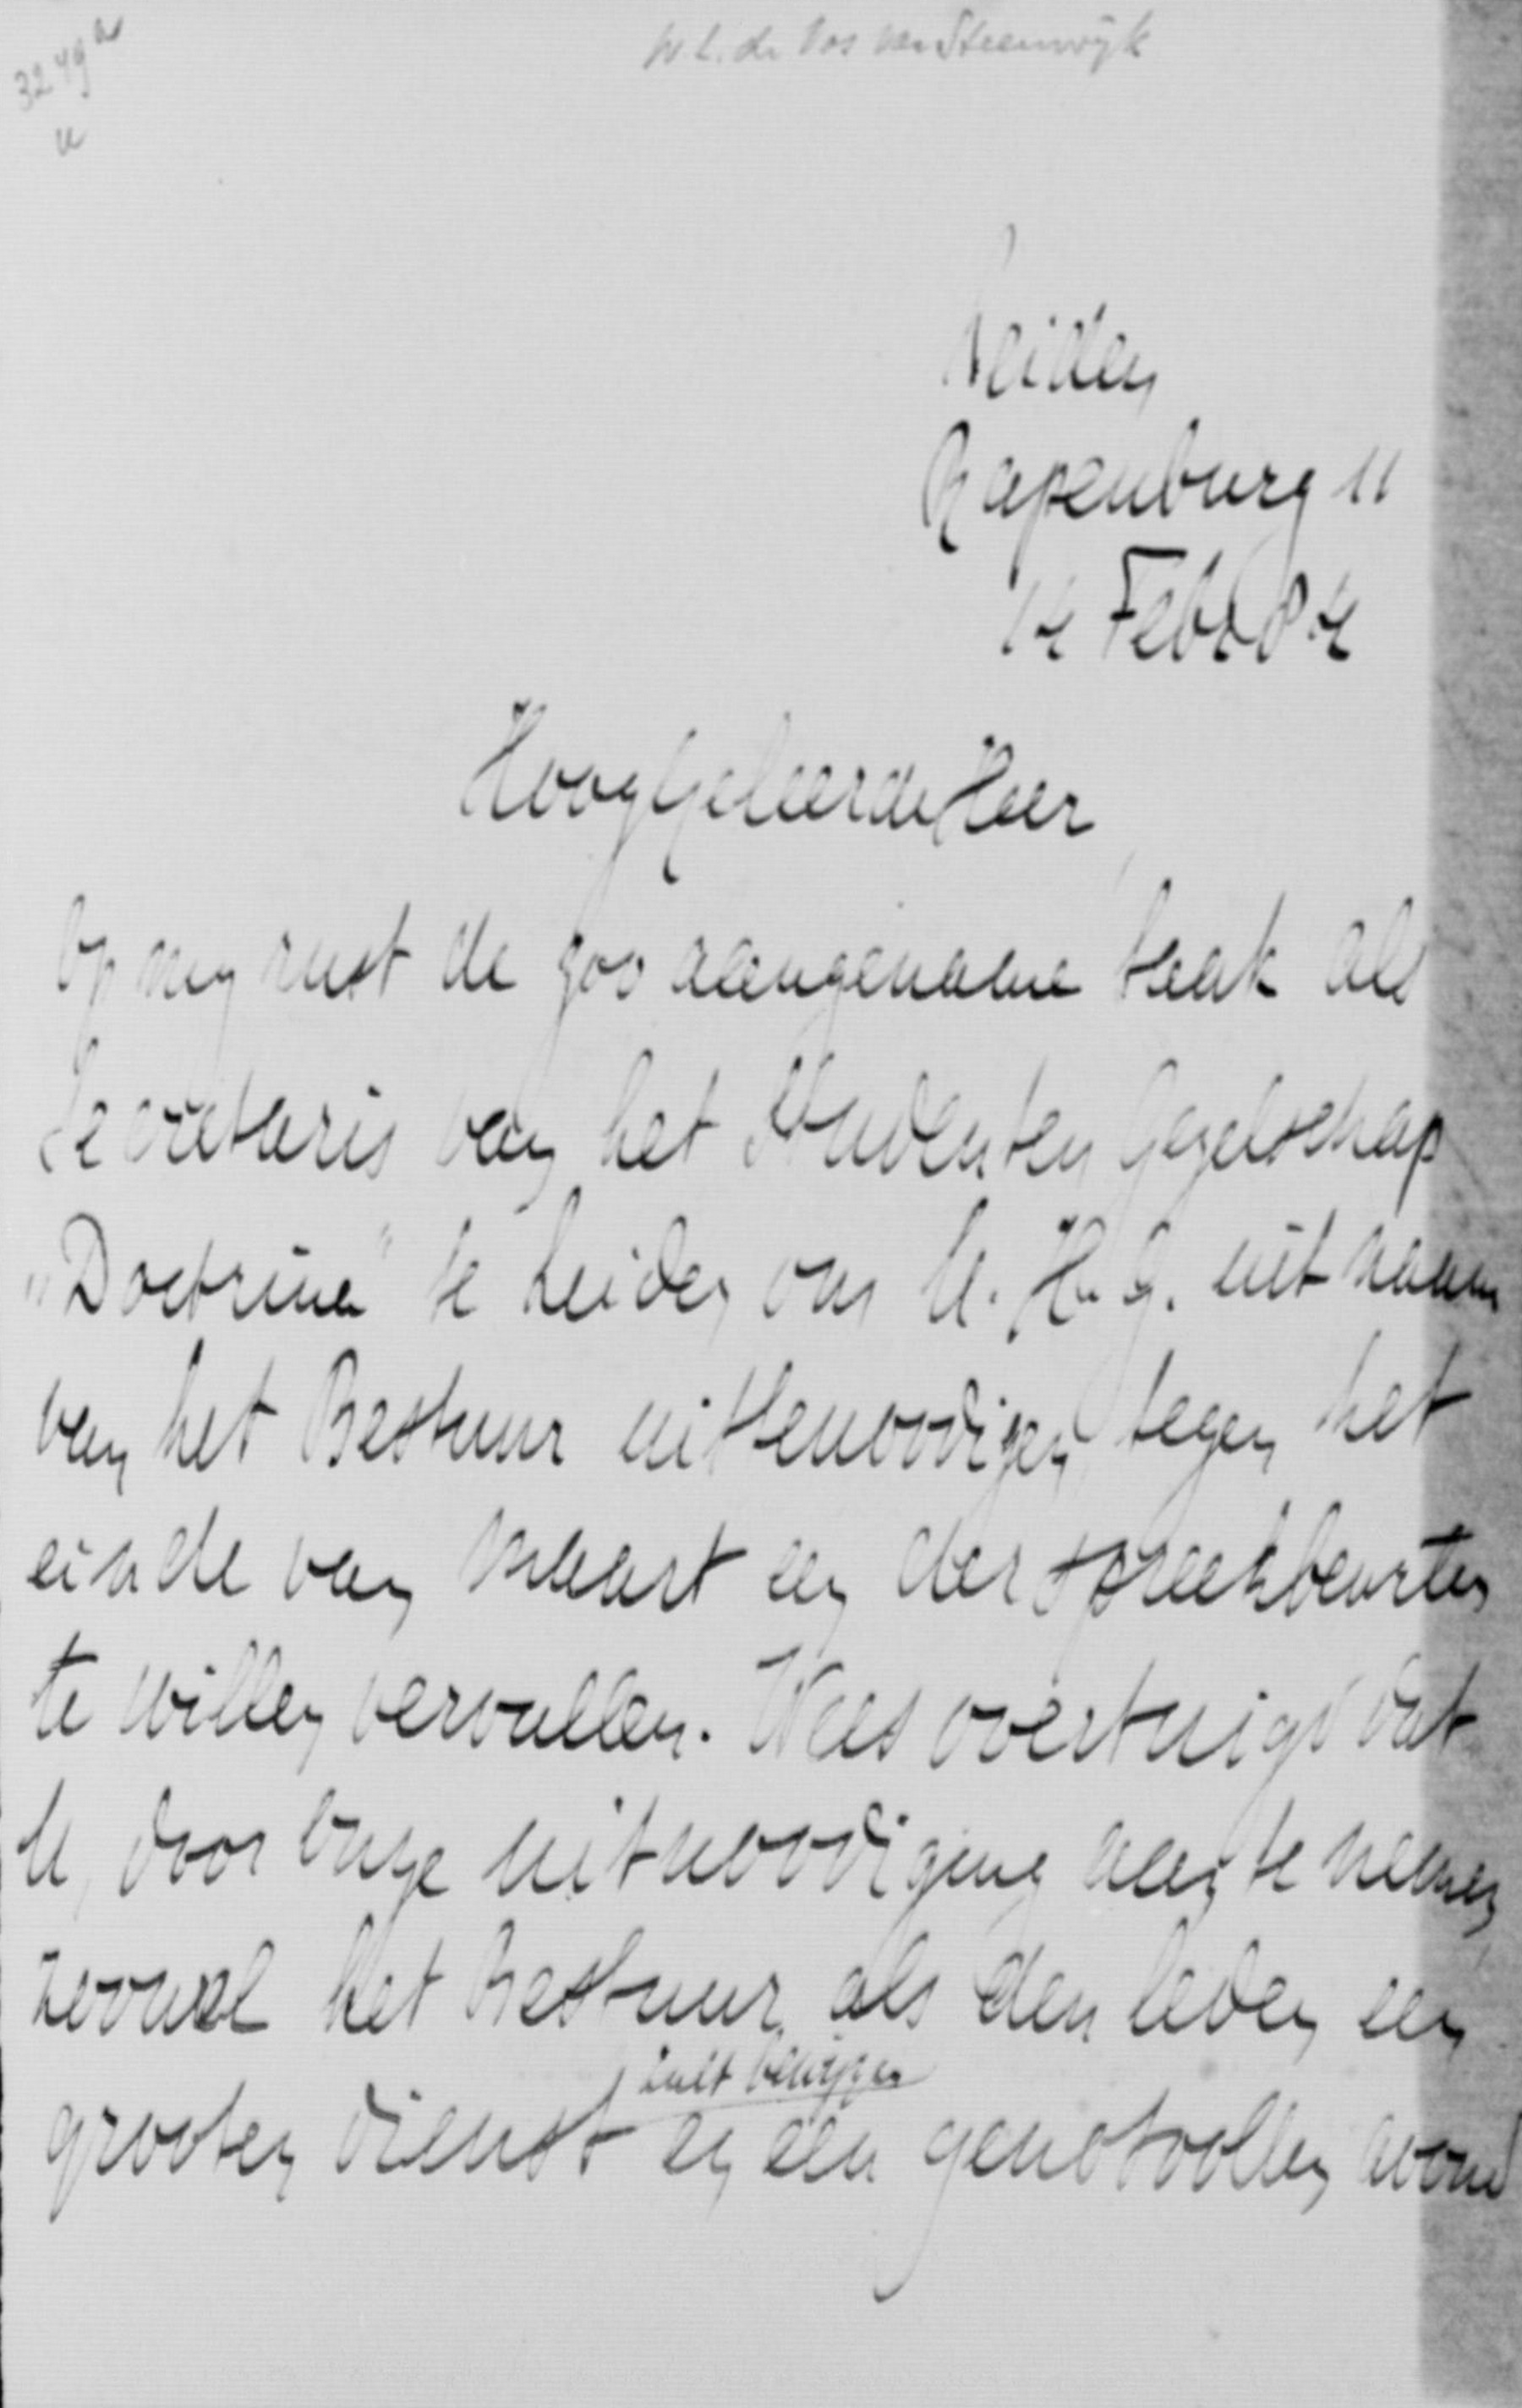 W. L. de Vos van Steenwijk
3249 a
u
Leiden
Rapenburg 11
14 Febr 84
HoogGeleerde Heer,
Op mij rust de zoo aangename taak als
Secretaris van het Studenten Gezelschap
„Doctrina" te Leiden om U. H. G. uit naam
van het Bestuur uittenoodigen, tegen het
einde van Maart een der spreekbeurten
te willen vervullen. Wees overtuigd dat
U, door onze uitnoodiging aan te nemen,
zoowel het Bestuur als den leden een
zult bewijzen
grooten dienst en een genotvollen avond